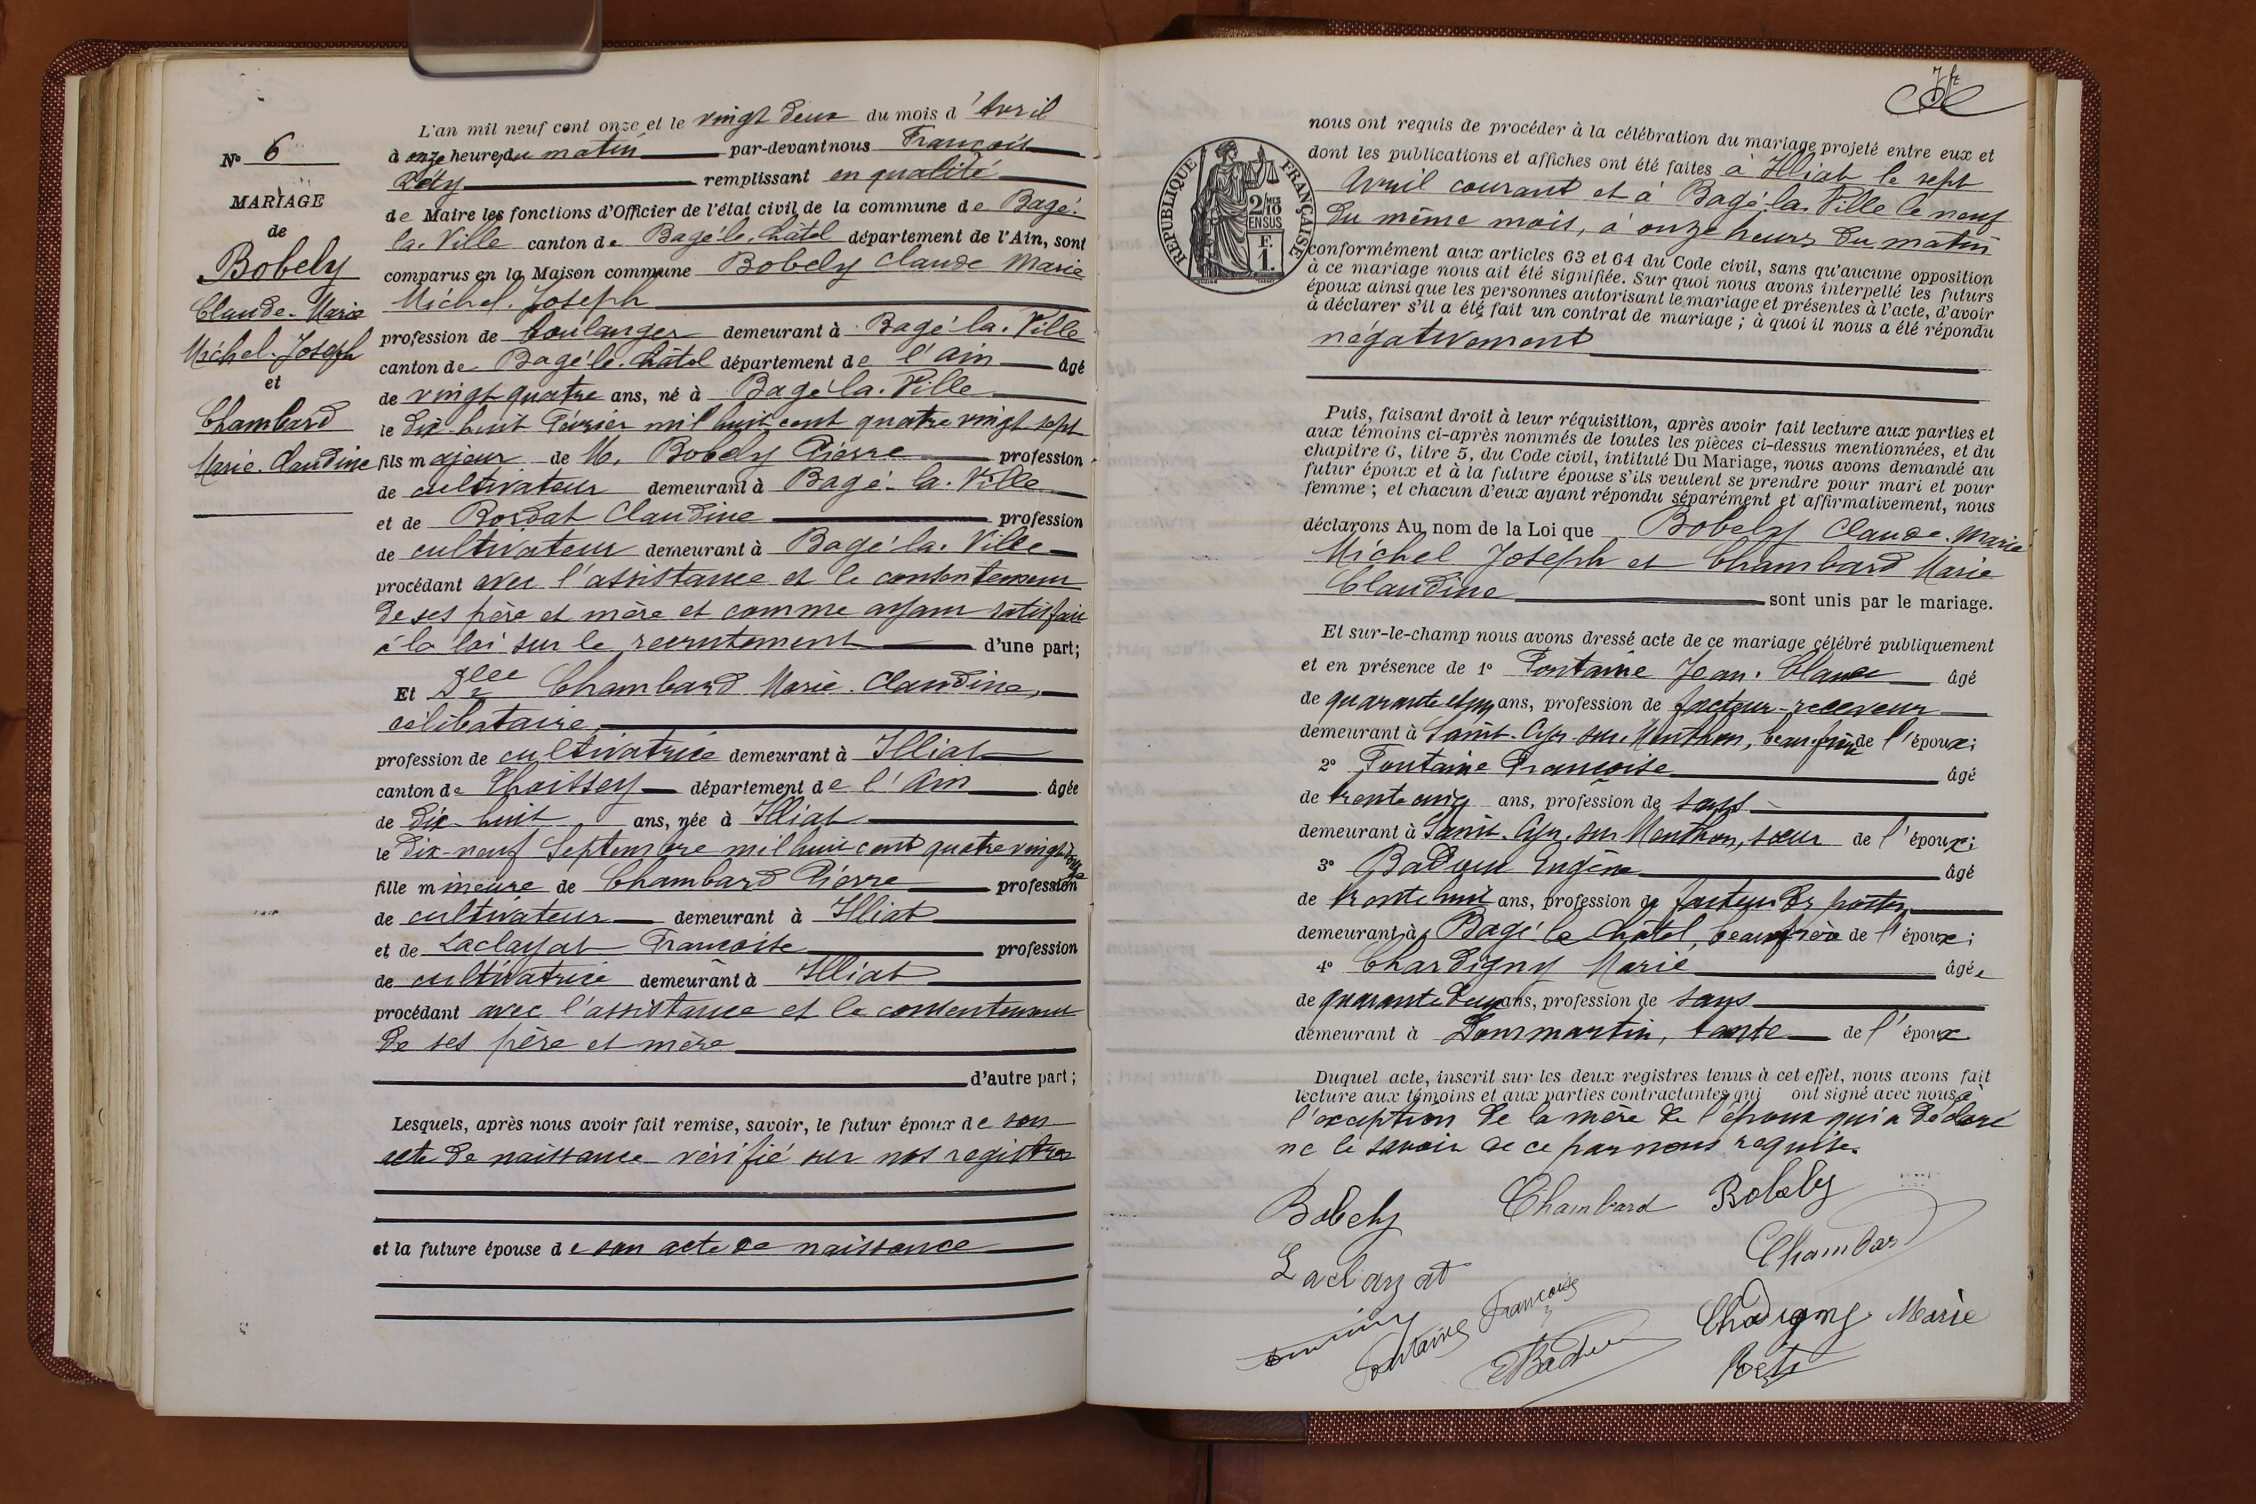 L'an mil neuf cent onze et le vingt deux du mois d'Avril
N° 6
à onze heures du matin par-devant nous François
Réty remplissant en qualité
MARIAGE
de Maire les fonctions d'Officier de l'état civil de la commune de Bagé-
de
la-Ville canton de Bagé-le-Châtel département de l'Ain, sont
Bobely
comparus en la Maison commune Bobely Claude Marie
Claude-Marie
Michel-Joseph
profession de boulanger demeurant à Bagé-la-Ville
Michel-Joseph
canton de Bagé-le-Châtel département de l'Ain âgé
et
de vingt quatre ans, né à Bagé-la-Ville
Chambard
le dix-huit Février mil huit cent quatre vingt sept
Marie-Claudine
fils majeur de M. Bobely Pierre profession
de cultivateur demeurant à Bagé-la-Ville
et de Bordat Claudine profession
de cultivateur demeurant à Bagé-la-Ville
procédant avec l'assistance et le consentement
de ses père et mère et comme ayant satisfait
à la loi sur le recrutement d'une part;
Et Dlle Chambard Marie-Claudine,
célibataire
profession de cultivatrice demeurant à Illiat
canton de Thoissey département de l'Ain âgée
de dix-huit ans, née à Illiat
le dix-neuf Septembre mil huit cent quatre vingt douze
fille mineure de Chambard Pierre profession
de cultivateur demeurant à Illiat
et de Laclayat Françoise profession
de cultivatrice demeurant à Illiat
procédant avec l'assistance et le consentement
de ses père et mère
d'autre part;
Lesquels, après nous avoir fait remise, savoir, le futur époux de son
acte de naissance vérifié sur nos registres
et la future épouse de son acte de naissance
RÉPUBLIQUE FRANÇAISE
2/10 EN SUS
F. 1.
nous ont requis de procéder à la célébration du mariage projeté entre eux et
dont les publications et affiches ont été faites à Illiat le sept
Avril courant et à Bagé-la-Ville le neuf
du même mois, à onze heures du matin
conformément aux articles 63 et 64 du Code civil, sans qu'aucune opposition
à ce mariage nous ait été signifiée. Sur quoi nous avons interpellé les futurs
époux ainsi que les personnes autorisant le mariage et présentes à l'acte, d'avoir
à déclarer s'il a été fait un contrat de mariage; à quoi il nous a été répondu
négativement
Puis, faisant droit à leur réquisition, après avoir fait lecture aux parties et
aux témoins ci-après nommés de toutes les pièces ci-dessus mentionnées, et du
chapitre 6, titre 5, du Code civil, intitulé Du Mariage, nous avons demandé au
futur époux et à la future épouse s'ils veulent se prendre pour mari et pour
femme; et chacun d'eux ayant répondu séparément et affirmativement, nous
déclarons Au nom de la Loi que Bobely Claude-Marie
Michel Joseph et Chambard Marie
Claudine sont unis par le mariage.
Et sur-le-champ nous avons dressé acte de ce mariage célébré publiquement
et en présence de 1° Fontaine Jean-Claude âgé
de quarante et un ans, profession de facteur-receveur
demeurant à Saint-Cyr-sur-Menthon, beau-frère de l'époux;
2° Fontaine Françoise âgé
de trente cinq ans, profession de sans
demeurant à Saint-Cyr-sur-Menthon, sœur de l'époux;
3° Badoux Eugène âgé
de trente huit ans, profession de facteur des postes
demeurant à Bagé-le-Châtel, beau-frère de l'époux;
4° Chardigny Marie âgée
de quarante deux ans, profession de sans
demeurant à Dommartin, tante de l'époux
Duquel acte, inscrit sur les deux registres tenus à cet effet, nous avons fait
lecture aux témoins et aux parties contractantes qui ont signé avec nous à
l'exception de la mère de l'époux qui a déclaré
ne le savoir de ce par nous requise.
Bobely Chambard Bobely
Laclayat Chambard
Fontaine Françoise Chardigny Marie
EBadoux Réty